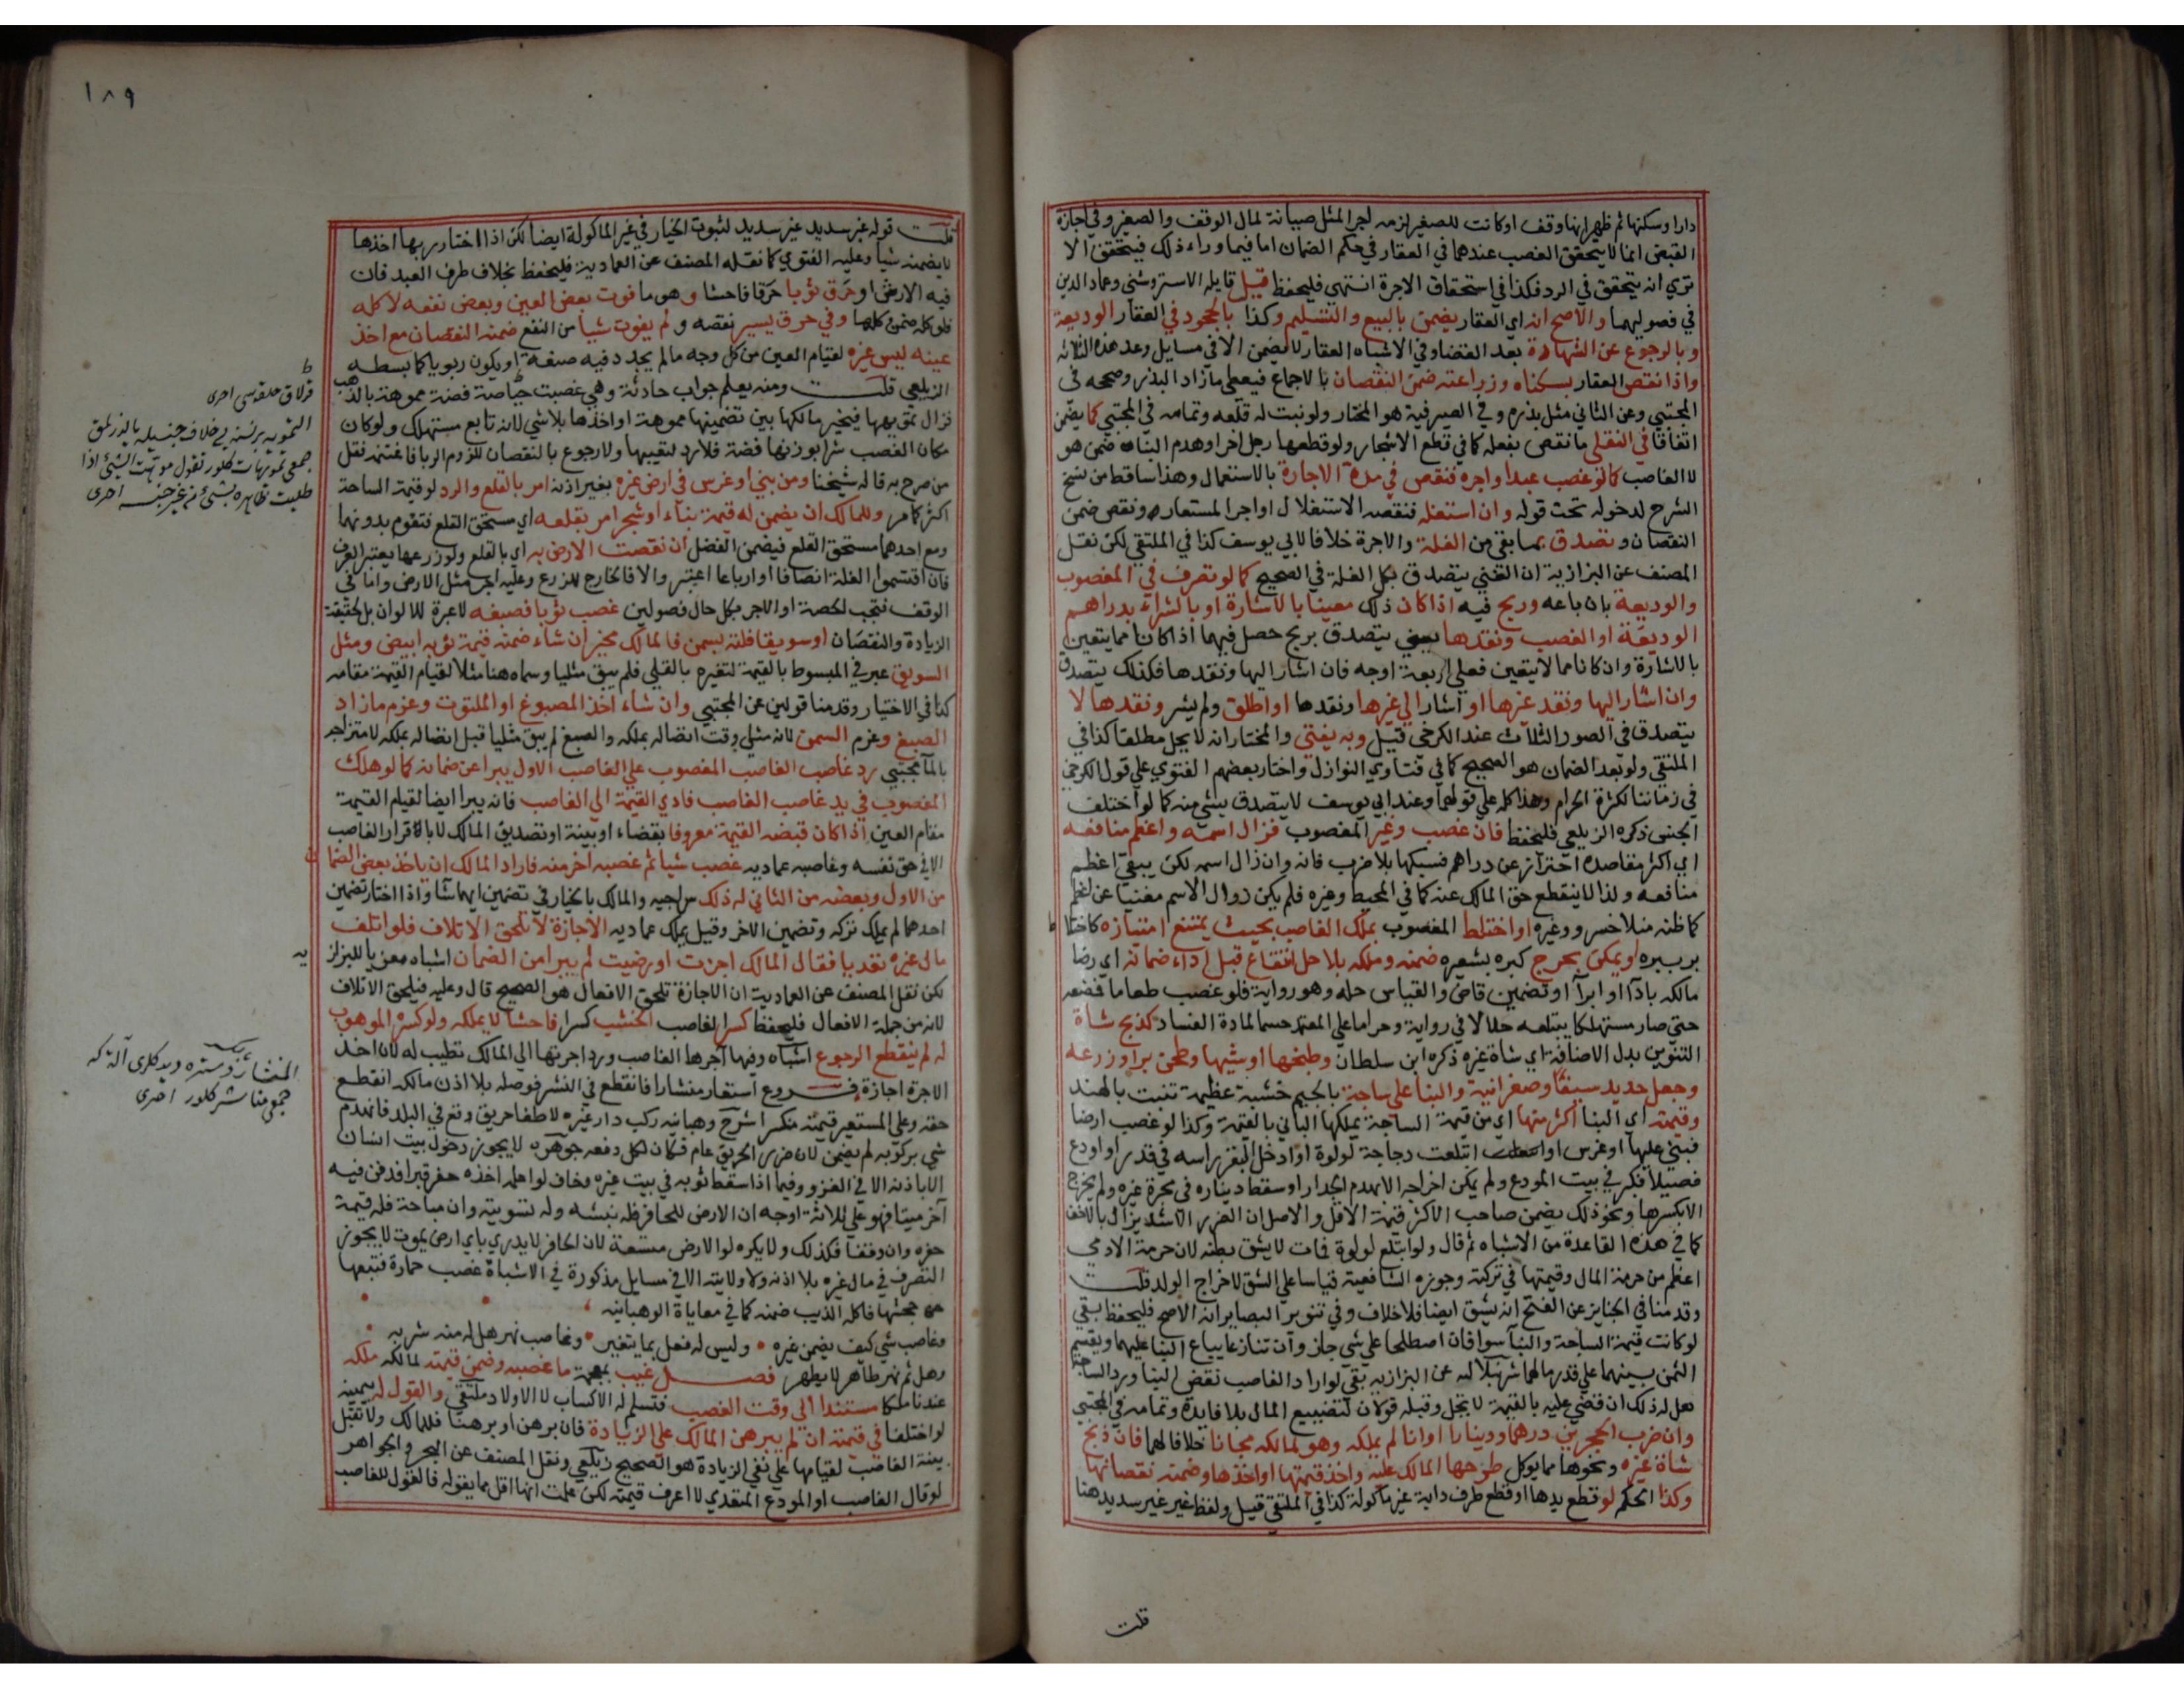 دارا وسكنها ثم ظهر انها وقف او كانت للصغير لزمه اجر المثل صيانة لمال الوقف والصغير وفي اجازة
القبض انما لا يتحقق الغصب عندهما في العقار في حكم الضمان اما فيما وراء ذلك فيتحقق الا
تري انه يتحقق في الرد فكذا في استحقاق الاجرة انتهي فليحفظ قيل قايله الاستروشني وعماد الدين
في فصوليهما والاصح انه اي العقار يضمن بالبيع والتسليم وكذا بالجحود في العقار الوديعة
وبالرجوع عن الشهادة بعد القضا وفي الاشباه العقار لا يضمن الا في مسايل وعد هذه الثلاثة
واذا نقص العقار بسكناه وزراعته ضمن النقصان بالاجماع فيعطي ما زاد البذر وصححه في
المجتبي وعن الثاني مثل بذره وفي الصيرفية هو المختار ولو نبت له قلعه وتمامه في المجتبي كما يضمن
اتفاقا في النقلي ما نقص بفعله كما في قطع الاشجار ولو قطعها رجل اخر او هدم البناء ضمن هو
لا الغاصب كما لو غصب عبدا واجره فنقص في مدة الاجارة بالاستعمال وهذا ساقط من نسخ
الشرح لدخوله تحت قوله وان استغله فنقصه الاستغلال او اجر المستعار ونقص ضمن
النقصان وتصدق بما بقي من الغلة والاجرة خلافا لابي يوسف كذا في الملتقي لكن نقل
المصنف عن البزازية ان الغني يتصدق بكل الغلة في الصحيح كما لو تصرف في المغصوب
والوديعة بان باعه وربح فيه اذا كان ذلك معينا بالاشارة او بالشراء بدراهم
الوديعة او الغصب ونقدها يعني يتصدق بربح حصل فيهما اذا كانا مما يتعين
بالاشارة وان كانا مما لا يتعين فعلي اربعة اوجه فان اشار اليها ونقدها فكذلك يتصدق
وان اشار اليها ونقد غيرها او اشار الي غيرها ونقدها او اطلق ولم يشر ونقدها لا
يتصدق في الصور الثلاث عند الكرخي قيل وبه يفتي والمختار انه لا يحل مطلقا كذا في
الملتقي ولو بعد الضمان هو الصحيح كما في فتاوي النوازل واختار بعضهم الفتوي علي قول الكرخي
في زماننا لكثرة الحرام وهذا كله علي قولهما وعند ابي يوسف لا يتصدق بشي منه كما لو اختلف
الجنس ذكره الزيلعي فليحفظ فان غصب وغير المغصوب فزال اسمه واعظم منافعه
اي اكثر مقاصده احترازا عن دراهم فسبكها بلا ضرب فانه وان زال اسمه لكن يبقي اعظم
منافعه ولذا لا ينقطع حق المالك عنه كما في المحيط وغيره فلم يكن زوال الاسم مغنيا عن اعظم
كما ظنه منلا خسرو وغيره او اختلط المغصوب بملك الغاصب بحيث يمتنع امتيازه كاختلا
ط
بر ببره او يمكن بحرج كبره بشعيره ضمنه وملكه بلا حل انتفاع قبل اداء ضمانه اي رضا
مالكه باداء او ابرا او تضمين قاض والقياس حله وهو رواية فلو غصب طعاما فمضغه
حتي صار مستهلكا يبتلعه حلالا في رواية وحراما علي المعتمد حسما لمادة الفساد كذبح شاة
التنوين بدل الاضافة اي شاة غيره ذكره ابن سلطان وطبخها او شيها وطحن بر او زرعه
وجعل حديد سيفا وصفر انية والبنا علي ساجة بالجيم خشبة عظيمة تنبت بالهند
وقيمته اي البنا اكثر منها اي من قيمة الساجة يملكها الباني بالقيمة وكذا لو غصب ارضا
فبني عليها او غرس او ابتلعت دجاجة لولوة او ادخل البقر راسه في قدر او اودع
فصيلا فكبر في بيت المودع ولم يمكن اخراجه الا بهدم الجدار او سقط ديناره في محبرة غيره ولم يخرج
الا بكسرها ونحو ذلك يضمن صاحب الاكثر قيمة الاقل والاصل ان الضرر الاشد يزال بالاخف
كما في هذه القاعدة من الاشباه ثم قال ولو ابتلع لولوة فمات لا يشق بطنه لان حرمة الادمي
اعظم من حرمة المال وقيمتها في تركته وجوزه الشافعية قياسا علي الشق لاخراج الولد قلت
وقدمنا في الجنايز عن الفتح انه يشق ايضا فلا خلاف وفي تنوير البصاير انه الاصح فليحفظ بقي
لو كانت قيمة الساجة والبنا سوا فان اصطلحا علي شي جاز وان تنازعا يباع البنا عليهما ويقسم
الثمن بينهما علي قدر مالهما شرنبلاليه عن البزازيه بقي لو اراد الغاصب نقض البنا ورد الساجة
هل له ذلك ان قضي عليه بالقيمة لا يحل وقبله قولان لتضييع المال بلا فايدة وتمامه في المجتبي
وان ضرب الحجرين درهما ودينارا او انا لم يملكه وهو لمالكه مجانا خلافا لهما فان ذبح
شاة غيره ونحوها مما يوكل طرحها المالك عليه واخذ قيمتها او اخذها وضمنه نقصانها
وكذا الحكم لو قطع يدها او قطع طرف دابة غير ماكولة كذا في الملتقي قيل ولفظ غير غير سديد هنا
قلت
١٨٩
قلت قوله غير سديد غير سديد لثبوت الخيار في غير الماكولة ايضا لكن اذا اختار ربها اخذها
لا يضمنه شيا وعليه الفتوي كما نقله المصنف عن العمادية فليحفظ بخلاف طرف العبد فان
فيه الارش او خرق ثوبا خرقا فاحشا وهو ما فوت بعض العين وبعض نفعه لا كله
فلو كله ضمن كلها وفي خرق يسير نقصه ولم يفوت شيا من النفع ضمنه النقصان مع اخذ
عينه ليس غيره لقيام العين من كل وجه ما لم يجدد فيه صنعة او يكون ربويا كما بسطه
الزيلعي قلت ومنه يعلم جواب حادثة وهي غصبت حياصة فضة مموهة بالذهب
فزال تمويهها فيخير مالكها بين تضمينها مموهة او اخذها بلا شي لانه تابع مستهلك ولو كان
مكان الغصب شرا بوزنها فضة فلا رد لتعيبها ولا رجوع بالنقصان للزوم الربا فاغتنمه فقل
من صرح به قاله شيخنا ومن بني او غرس في ارض غيره بغير اذنه امر بالقلع والرد لو قيمة الساحة
اكثر كما مر وللمالك ان يضمن له قيمة بناء او شجر امر بقلعه اي مستحق القلع فتقوم بدونهما
ومع احدهما مستحق القلع فيضمن الفضل ان نقصت الارض به اي بالقلع ولو زرعها يعتبر العرف
فان اقتسموا الغلة انصافا او ارباعا اعتبر والا فالخارج للزرع وعليه اجر مثل الارض واما في
الوقف فتجب الحصة او الاجر بكل حال فصولين غصب ثوبا فصبغه لا عبرة للالوان بل لحقيقة
الزيادة والنقصان او سويقا فلته بسمن فالمالك مخير ان شاء ضمنه قيمة ثوبه ابيض ومثل
السويق عبر في المبسوط بالقيمة لتغيره بالقلي فلم يبق مثليا وسماه هنا مثلا لقيام القيمة مقامه
كذا في الاختيار وقدمنا قولين عن المجتبي وان شاء اخذ المصبوغ او الملتوت وغرم ما زاد
الصبغ وغرم السمن لانه مثلي وقت اتصاله بملكه والصبغ لم يبق مثليا قبل اتصاله بملكه لامتزاجه
بالما مجتبي رد غاصب الغاصب المغصوب علي الغاصب الاول يبرا عن ضمانه كما لو هلك
المغصوب في يد غاصب الغاصب فادي القيمة الي الغاصب فانه يبرا ايضا لقيام القيمة
مقام العين اذا كان قبضه القيمة معروفا بقضاء او بينة او تصديق المالك لا باقرار الغاصب
الا في حق نفسه وغاصبه عماديه غصب شيا ثم غصبه اخر منه فاراد المالك ان ياخذ بعض الضما
ن
من الاول وبعضه من الثاني له ذلك سراجيه والمالك بالخيار في تضمين ايهما شا واذا اختار تضمين
احدهما لم يملك تركه وتضمين الاخر وقيل يملك عماديه الاجازة لا تلحق الاتلاف فلو اتلف
مال غيره تعديا فقال المالك اجزت او رضيت لم يبرا من الضمان اشباه معزيا للبزاز
يه
لكن نقل المصنف عن العمادية ان الاجازة تلحق الافعال هو الصحيح قال وعليه فتلحق الاتلاف
لانه من جملة الافعال فليحفظ كسر الغاصب الخشب كسرا فاحشا لا يملكه ولو كسره الموهوب
له لم ينقطع الرجوع اشباه وفيها اجرها الغاصب ورد اجرتها الي المالك تطيب له لان اخذ
الاجرة اجازة فروع استعار منشارا فانقطع في النشر فوصله بلا اذن مالكه انقطع
حقه وعلي المستعير قيمته منكسرا شرح وهبانيه ركب دار غيره لاطفا حريق وقع في البلد فانهدم
شي بركوبه لم يضمن لان ضرر الحريق عام فكان لكل دفعه جوهره لا يجوز دخول بيت انسان
الا باذنه الا في الغزو وفيما اذا سقط ثوبه في بيت غيره وخاف لو اعلمه اخذه حفر قبرا فدفن فيه
آخر ميتا فهو علي ثلاثة اوجه ان الارض للحافر فله نبشه وله تسويته وان مباحة فله قيمة
حفره وان وقفا فكذلك ولا يكره لو الارض متسعة لان الحافر لا يدري باي ارض يموت لا يجوز
التصرف في مال غيره بلا اذنه ولا ولايته الا في مسايل مذكورة في الاشباه غصب حمارة فتبعها
جحشها فاكله الذيب ضمنه كما في معاياة الوهبانيه
وغاصب شي كيف يضمن غيره • وليس له فعل بما يتغير • وغاصب نهر هل له منه شربه
وهل ثم نهر طاهر لا يطهر فصل غيب بمعجمة ما غصبه وضمن قيمته لمالكه ملكه
عندنا ملكا مستندا الي وقت الغصب فتسلم له الاكساب لا الاولاد ملتقي والقول له بيمينه
لو اختلفا في قيمته ان لم يبرهن المالك علي الزيادة فان برهن او برهنا فللمالك ولا تقبل
بينة الغاصب لقيامها علي نفي الزيادة هو الصحيح زيلعي ونقل المصنف عن البحر والجواهر
لو قال الغاصب او المودع المتعدي لا اعرف قيمته لكن علمت انها اقل مما يقوله فالقول للغاصب
قولاق حلقه سي اخري
جمعي تمويهات كلور تقول موهت الشئ اذا
طليت ظاهره بشئ من غير جنسه اخري
المنشار دستره ديدكلري آلة كه
جمعي مناشر كلور اخري